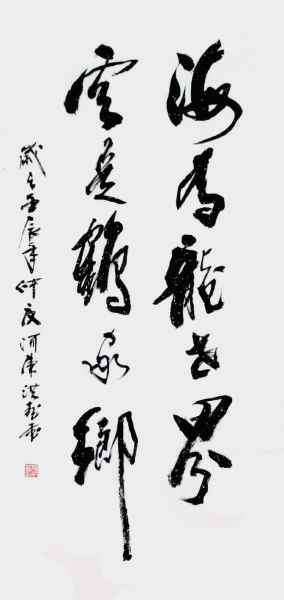 海為龍世界
雲是鶴家鄉
歲在壬辰年仲夏河東洪